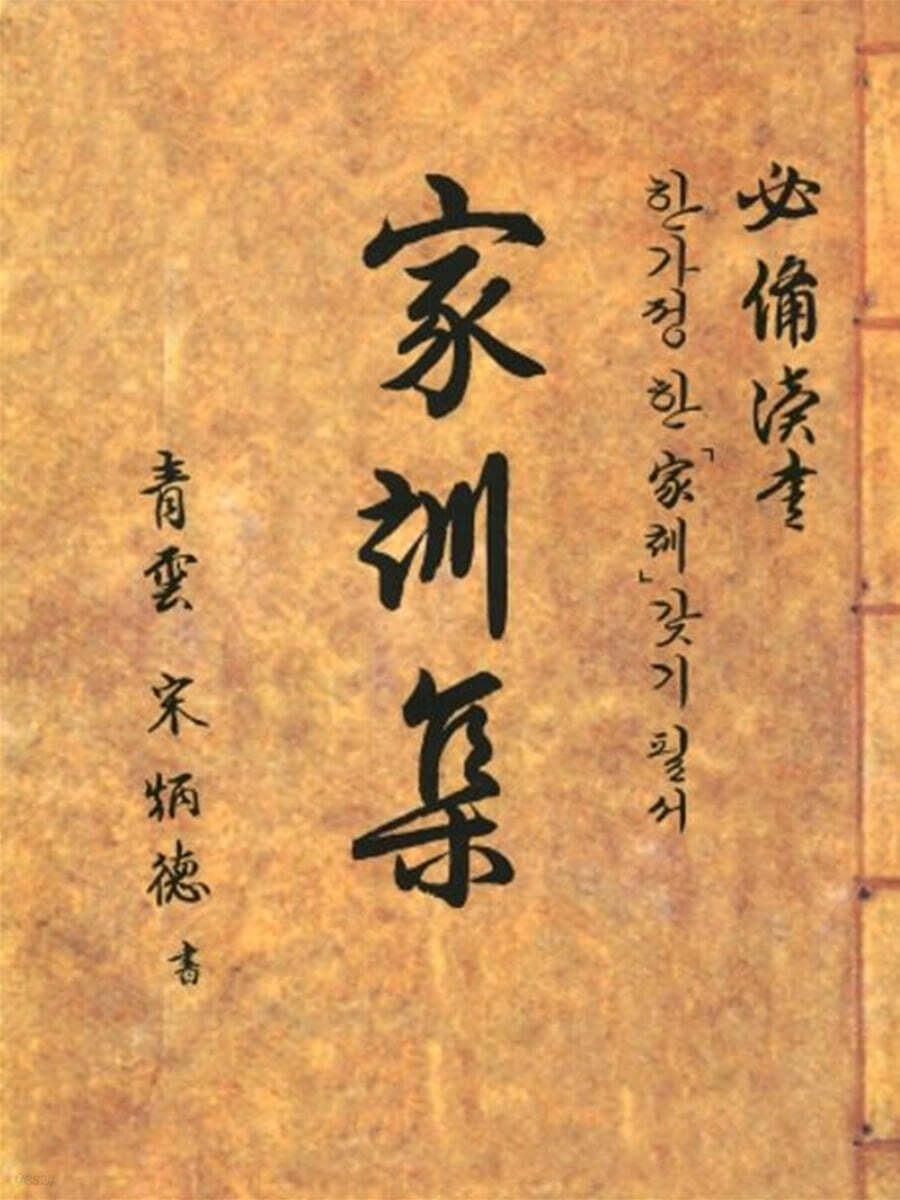 必備讀書
한가정 한 「家訓」 갖기 필서
家訓集
靑雲 宋炳德 書